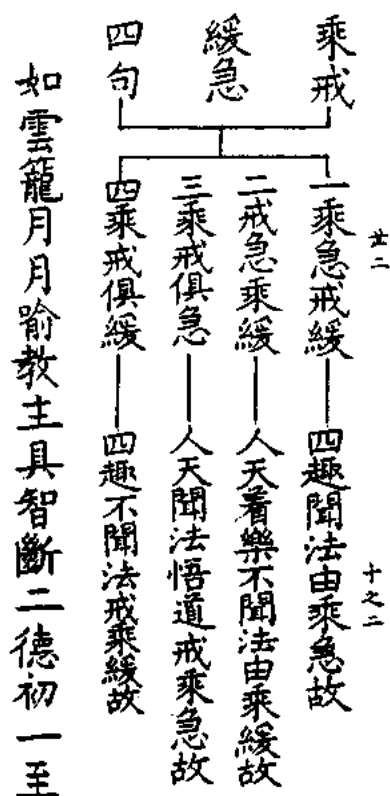 乘戒
緩急
四句
一乘急戒緩
四趣聞法由乘急故
二戒急乘緩
人天着樂不聞法由乘緩故
三乘戒俱急
人天聞法悟道戒乘急故
四乘戒俱緩
四趣不聞法戒乘緩故
廿二
十之二
如雲籠月月喻教主具智斷二德初一至